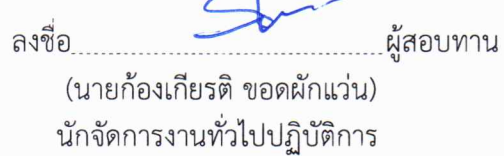 ลงชื่อ................................................ผู้สอบทาน
(นายก้องเกียรติ ขอดผักแว่น)
นักจัดการงานทั่วไปปฏิบัติการ